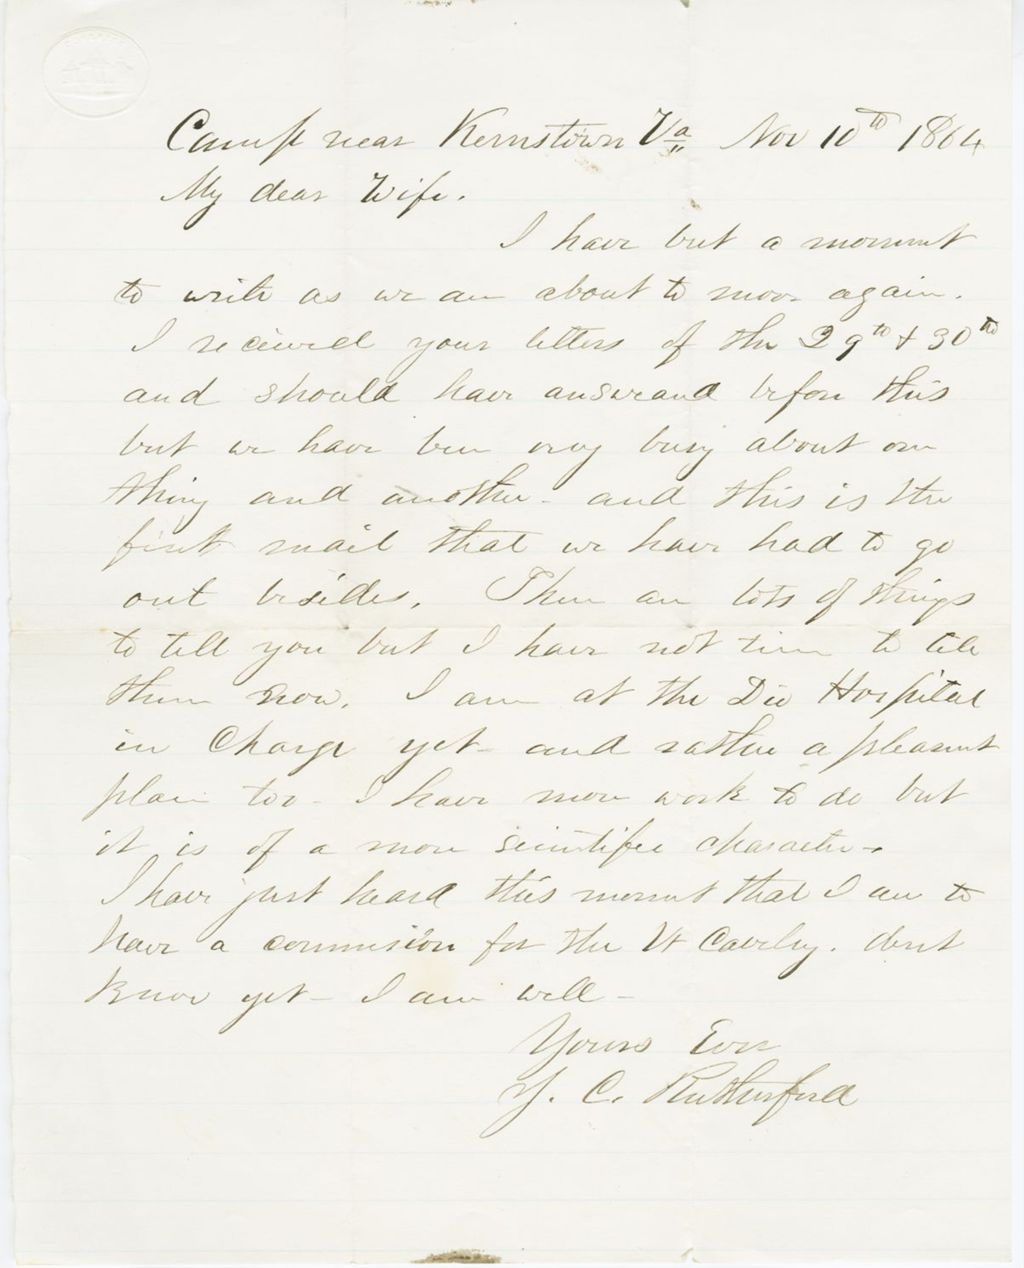 Camp near Kernstown Va Nov 10th 1864
My dear Wife.
I have but a moment
to write as we are about to move again.
I received your letters of the 29th & 30th
and should have answeared before this
but we have been very busy about one
thing and another - and this is the
first mail that we have had to go
out besides. There are lots of things
to tell you but I have not time to tell
them now. I am at the Div Hospital
in Charge yet - and rather a pleasant
place too - I have more work to do but
it is of a more scientific character -
I have just heard this moment that I am to
have a commision for the Vt Cavelry. dont
know yet - I am well -
Yours Ever
J. C. Rutherford